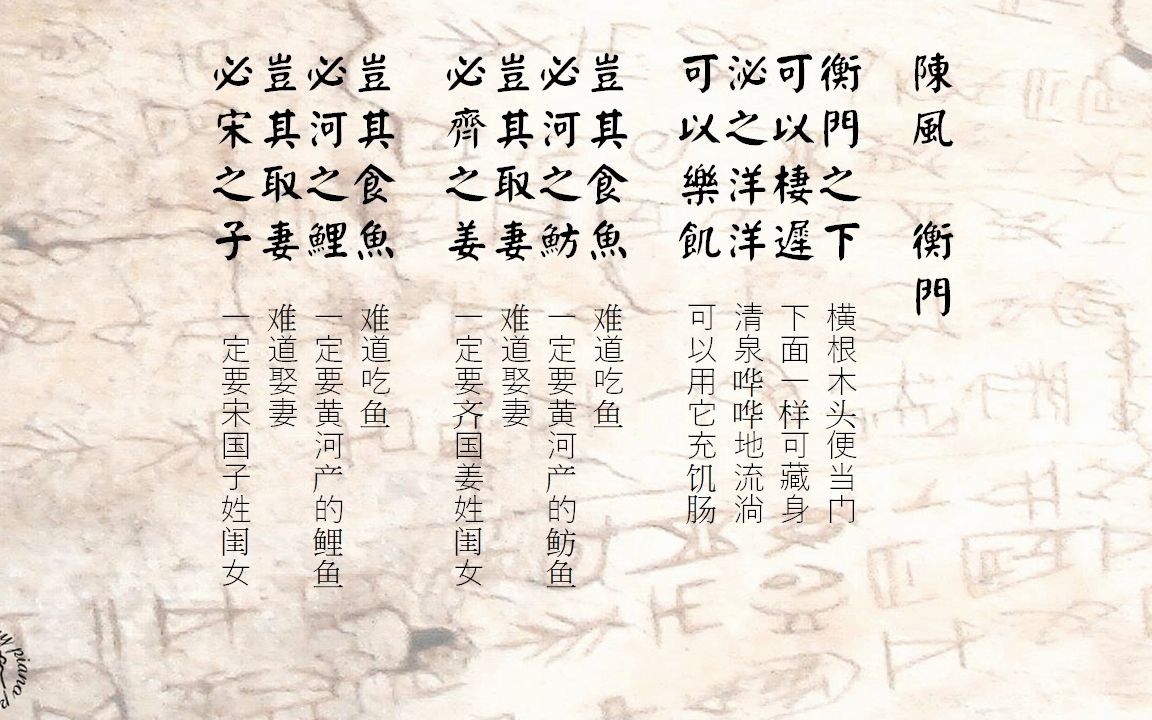 陳風 衡門
衡門之下
可以棲遲
泌之洋洋
可以樂飢
豈其食魚
必河之魴
豈其取妻
必齊之姜
豈其食魚
必河之鯉
豈其取妻
必宋之子
横根木头便当门
下面一样可藏身
清泉哗哗地流淌
可以用它充饥肠
难道吃鱼
一定要黄河产的鲂鱼
难道娶妻
一定要齐国姜姓闺女
难道吃鱼
一定要黄河产的鲤鱼
难道娶妻
一定要宋国子姓闺女
piano